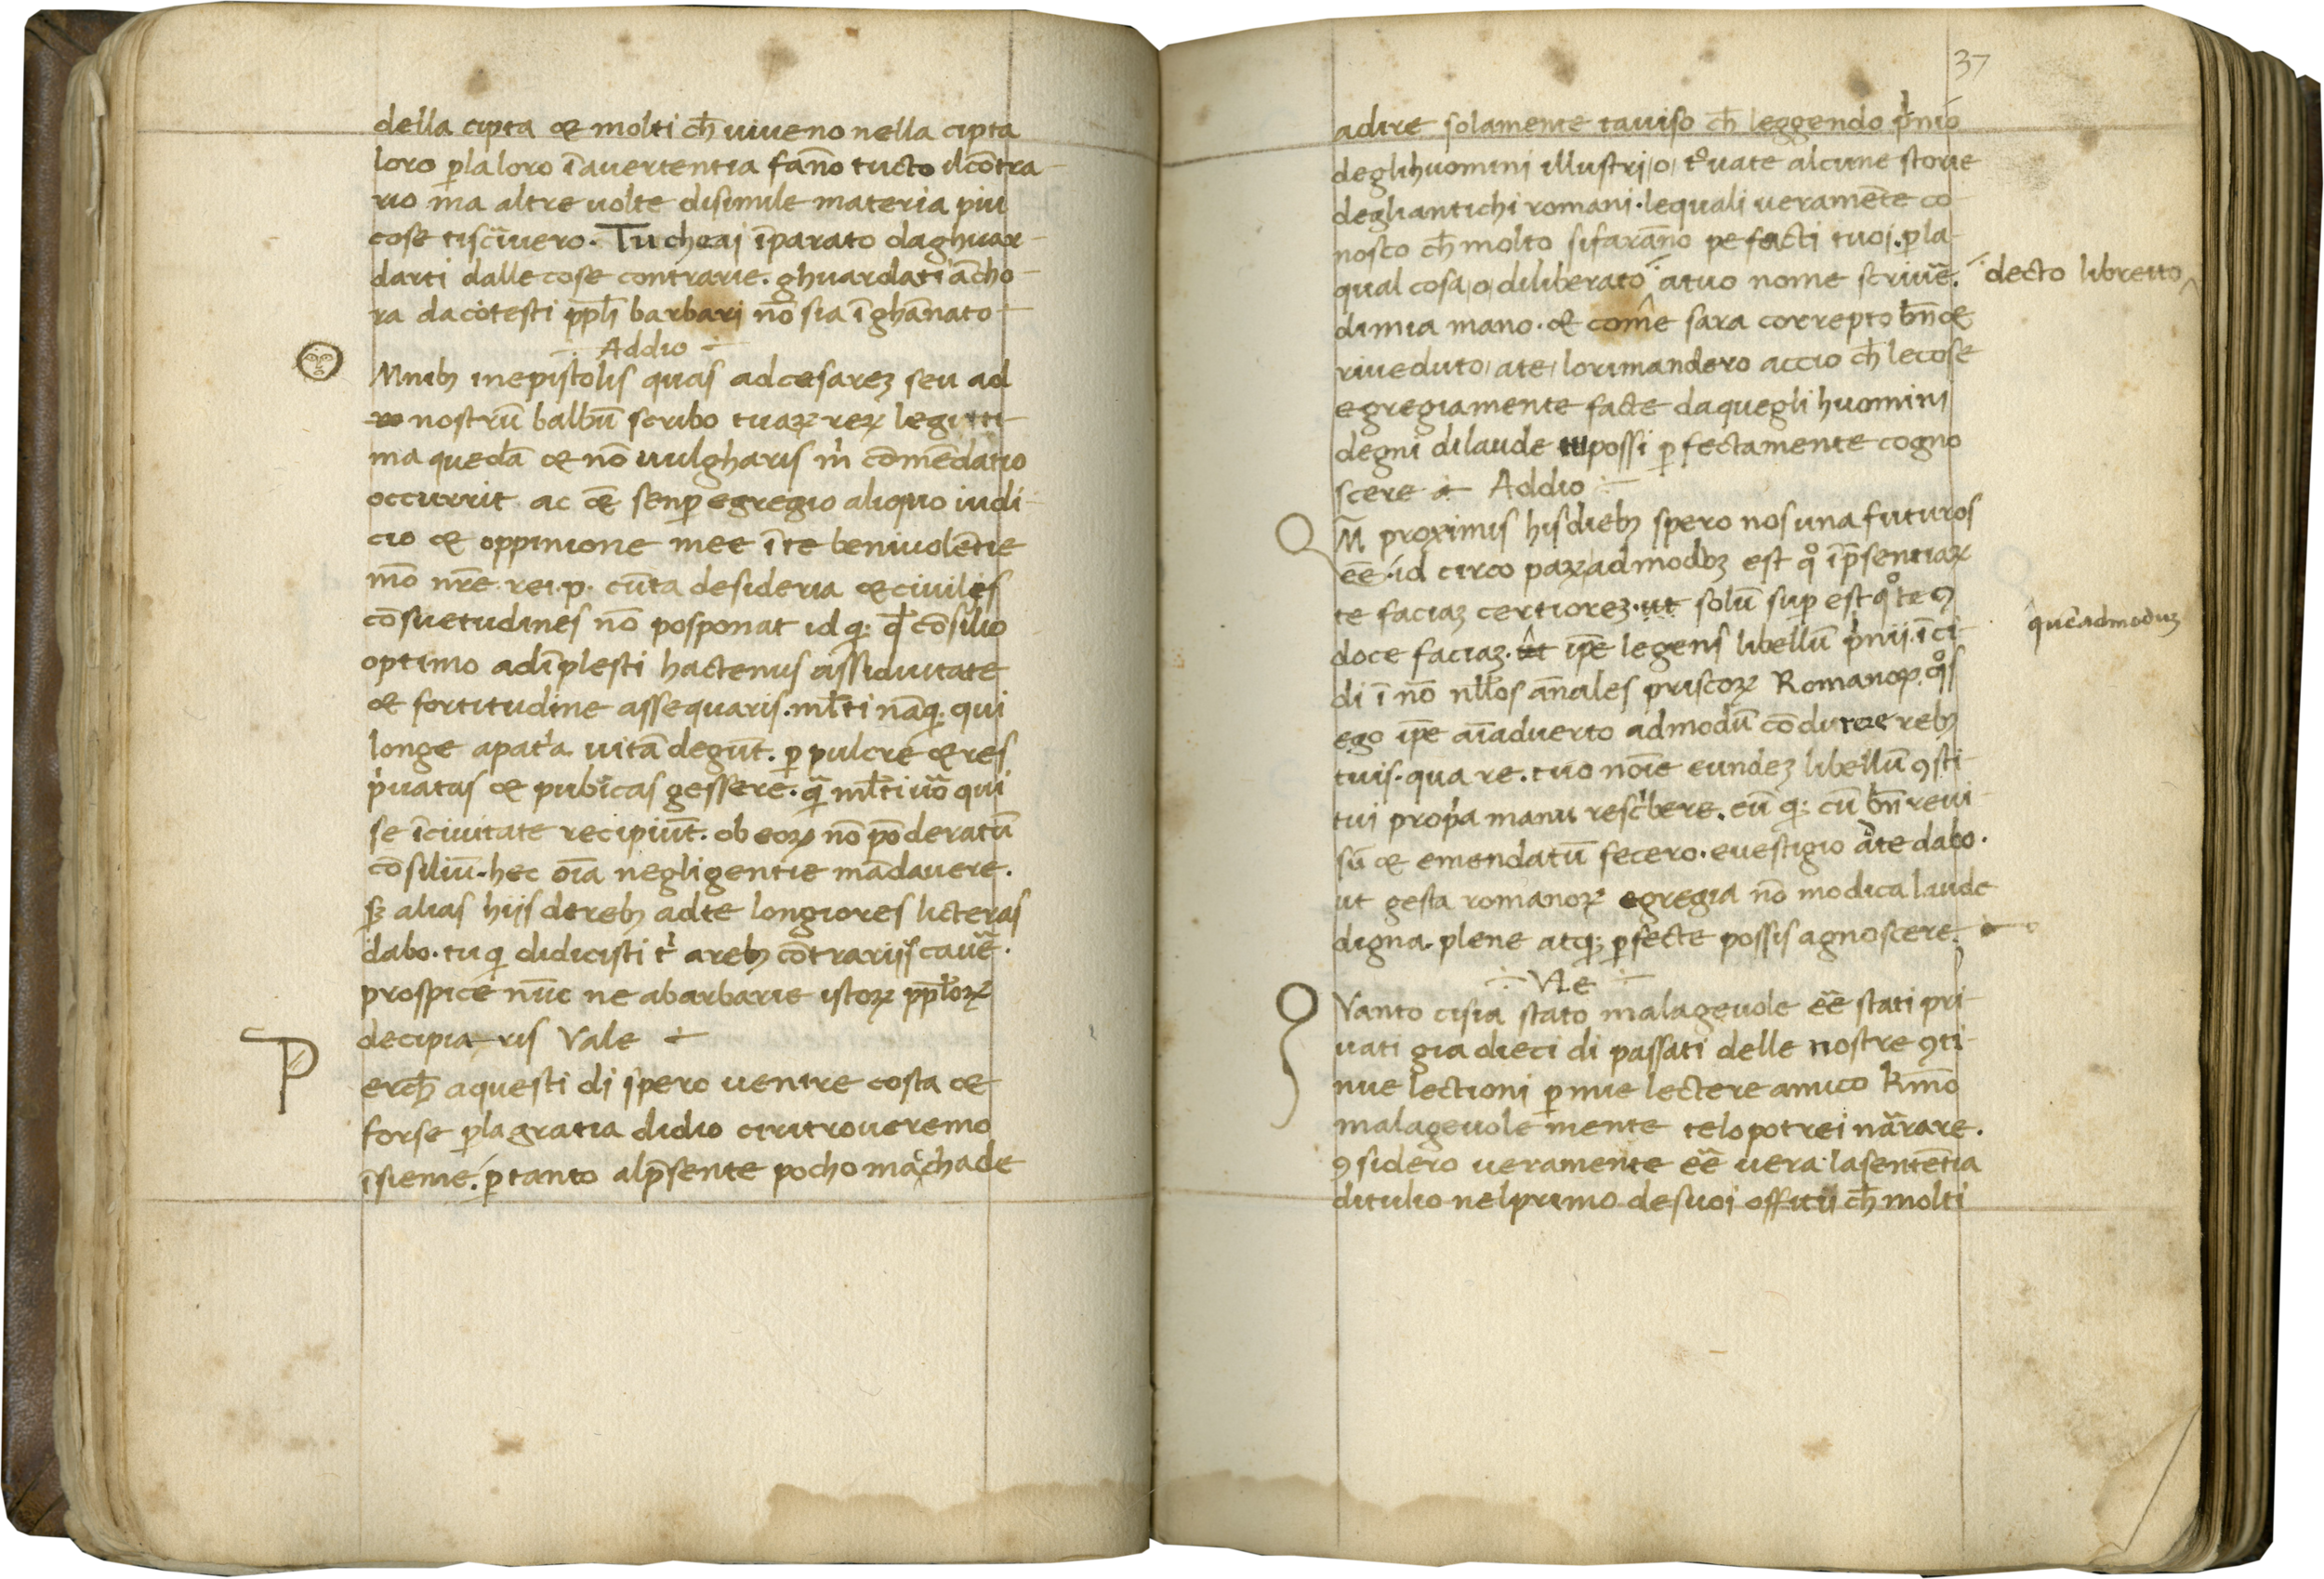 della cipta & molti ch̄ viveno nella cipta
loro ꝑla loro ī avertentia fan̄o tucto il cōtra-
rio ma altre volte disimile materia piu
cose tiscͥivero. Tu cheai īparato daghuar-
darti dalle cose contrarie. ghuardati ācho-
ra dacotesti pp̄li barbari nō sia īghānato
Addio
Mnibȝ inepistolis quas adcesareȝ seu ad
nostrū balbū scribo tuaꝝ reꝝ legitti-
ma quedā & nō vulgharis m̍ cōmēdatio
occurrit ac cē̄ senꝑ egregio aliquo iudi-
cio & oppinione mee ī te benivolētie
mō nr̄e rei.p. cūta desideria & civiles
cōsuetudines nō posponat id q: q̄ cōsilio
optimo adīplesti hactenus assiduitate
& fortitudine assequaris. ml̄ti nāq: qui
longe apat̍a vitā degūt. ꝑ pulcre & res
p̍vatas & publicas gessere. q̄ ml̄ti v̄o qui
se īcivitate recipiūt. ob eoꝝ nō pōderatū
cōsiliū. hec oīa negligentie mādavere.
sȝ alias hijs derebȝ adte longiores licteras
dabo. tu q didicisti t̍ arebȝ cōtrarijs cavē.
prospice nūc ne abarbarie istoꝝ pp̄loꝝ
decipia-ris Vale
P
erch̄ aquesti di spero venire costa &
forse ꝑla gratia didio ciritroveremo
īsieme. ꝑ tanto alp̄sente pocho mac̍hade
37
adire solamente taviso ch̄ leggendo p̍nio
deglihuomini illustri/o/ t°vate alcune storie
degliantichi romani. lequali veramēte co-
nosco ch̄ molto sifarāno pe facti tuoi. ꝑla-
qual cosa/o/diliberato atuo nome scrivē.
decto libretto
dimia mano. & come sara correpto bn̄ &
riveduto/ate/lorimandero accio ch̄ lecose
egregiamente facte daquegli huomini
degni dilaude tu possi ꝑfectamente cogno
scere Addio
Q
M̄ proximis hisdiebȝ spero nos una futuros
eē. id circo paꝝ admoduȝ est q° īp̄sentiaꝝ
te faciaȝ certioreȝ. ut solū suꝑ est q° te ꝯ
quēadmoduȝ
doce faciaȝ. ut ip̄e legens libellū p̍nii. īci-
di ī nō nll̄os ānales priscoꝝ Romanoꝝ. q°s
ego ip̄e aīadverto admodū cōducere rebȝ
tuis. qua re. tuo noīe eundeȝ libellū ꝯsti-
tui prop̍a manu resc̍bere. eū q: cū bn̄ revi-
sū & emendatū fecero. evestigio ate dabo.
ut gesta romanoꝝ egregia nō modica laude
digna. plene atq: ꝑfecte possis agnoscere.
Vl̄e
Q
Vanto cisia stato malagevole eē stati pri-
vati gia dieci di passati delle nostre ꝯti-
nue lectioni ꝑ mie lectere amico k̄mō
malagevole mente telo potrei nārare.
ꝯsidero veramente eē vera lasentētia
ditulio nelprimo desuoi offitii ch̄ molti